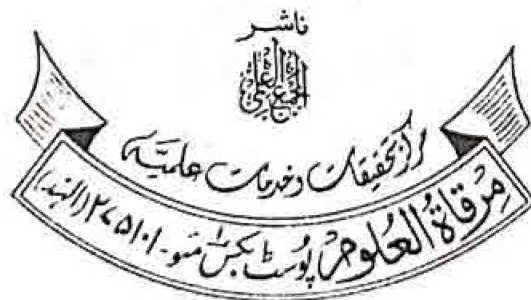 ناشر
المجمع العلمي
مرکز تحقیقات و خدمات علمیۃ
مِرقاةُ العُلوم پوسٹ بکس ۱ مئو - ۲۷۵۱۰۱ (الہند)